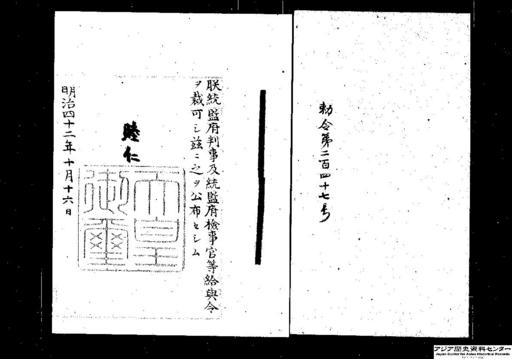 勅令第二百四十七号
朕統監府判事及統監府檢事官等給與令
ヲ裁可シ茲ニ之ヲ公布セシム
睦仁
天皇御璽
明治四十二年十月十六日
アジア歴史資料センター
Japan Center for Asian Historical Records